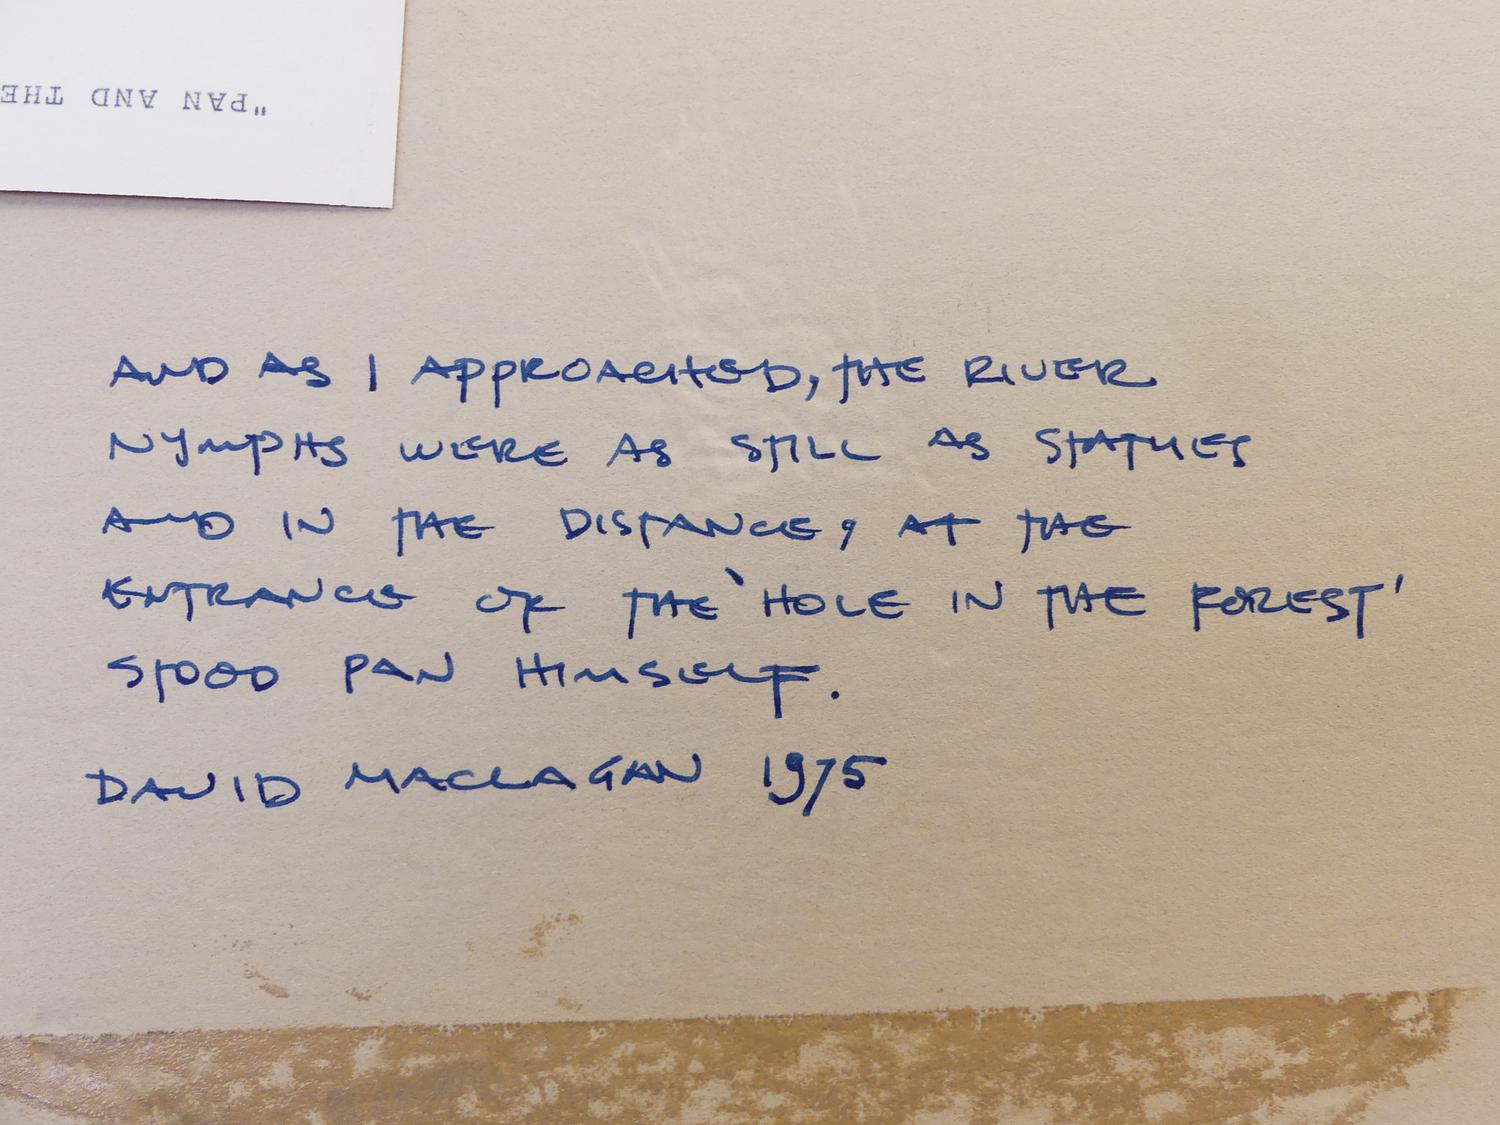 "PAN AND THE
AND AS I APPROACHED, THE RIVER
NYMPHS WERE AS STILL AS STATUES
AND IN THE DISTANCE, AT THE
ENTRANCE OF THE 'HOLE IN THE FOREST'
STOOD PAN HIMSELF.
DAVID MACLAGAN 1975